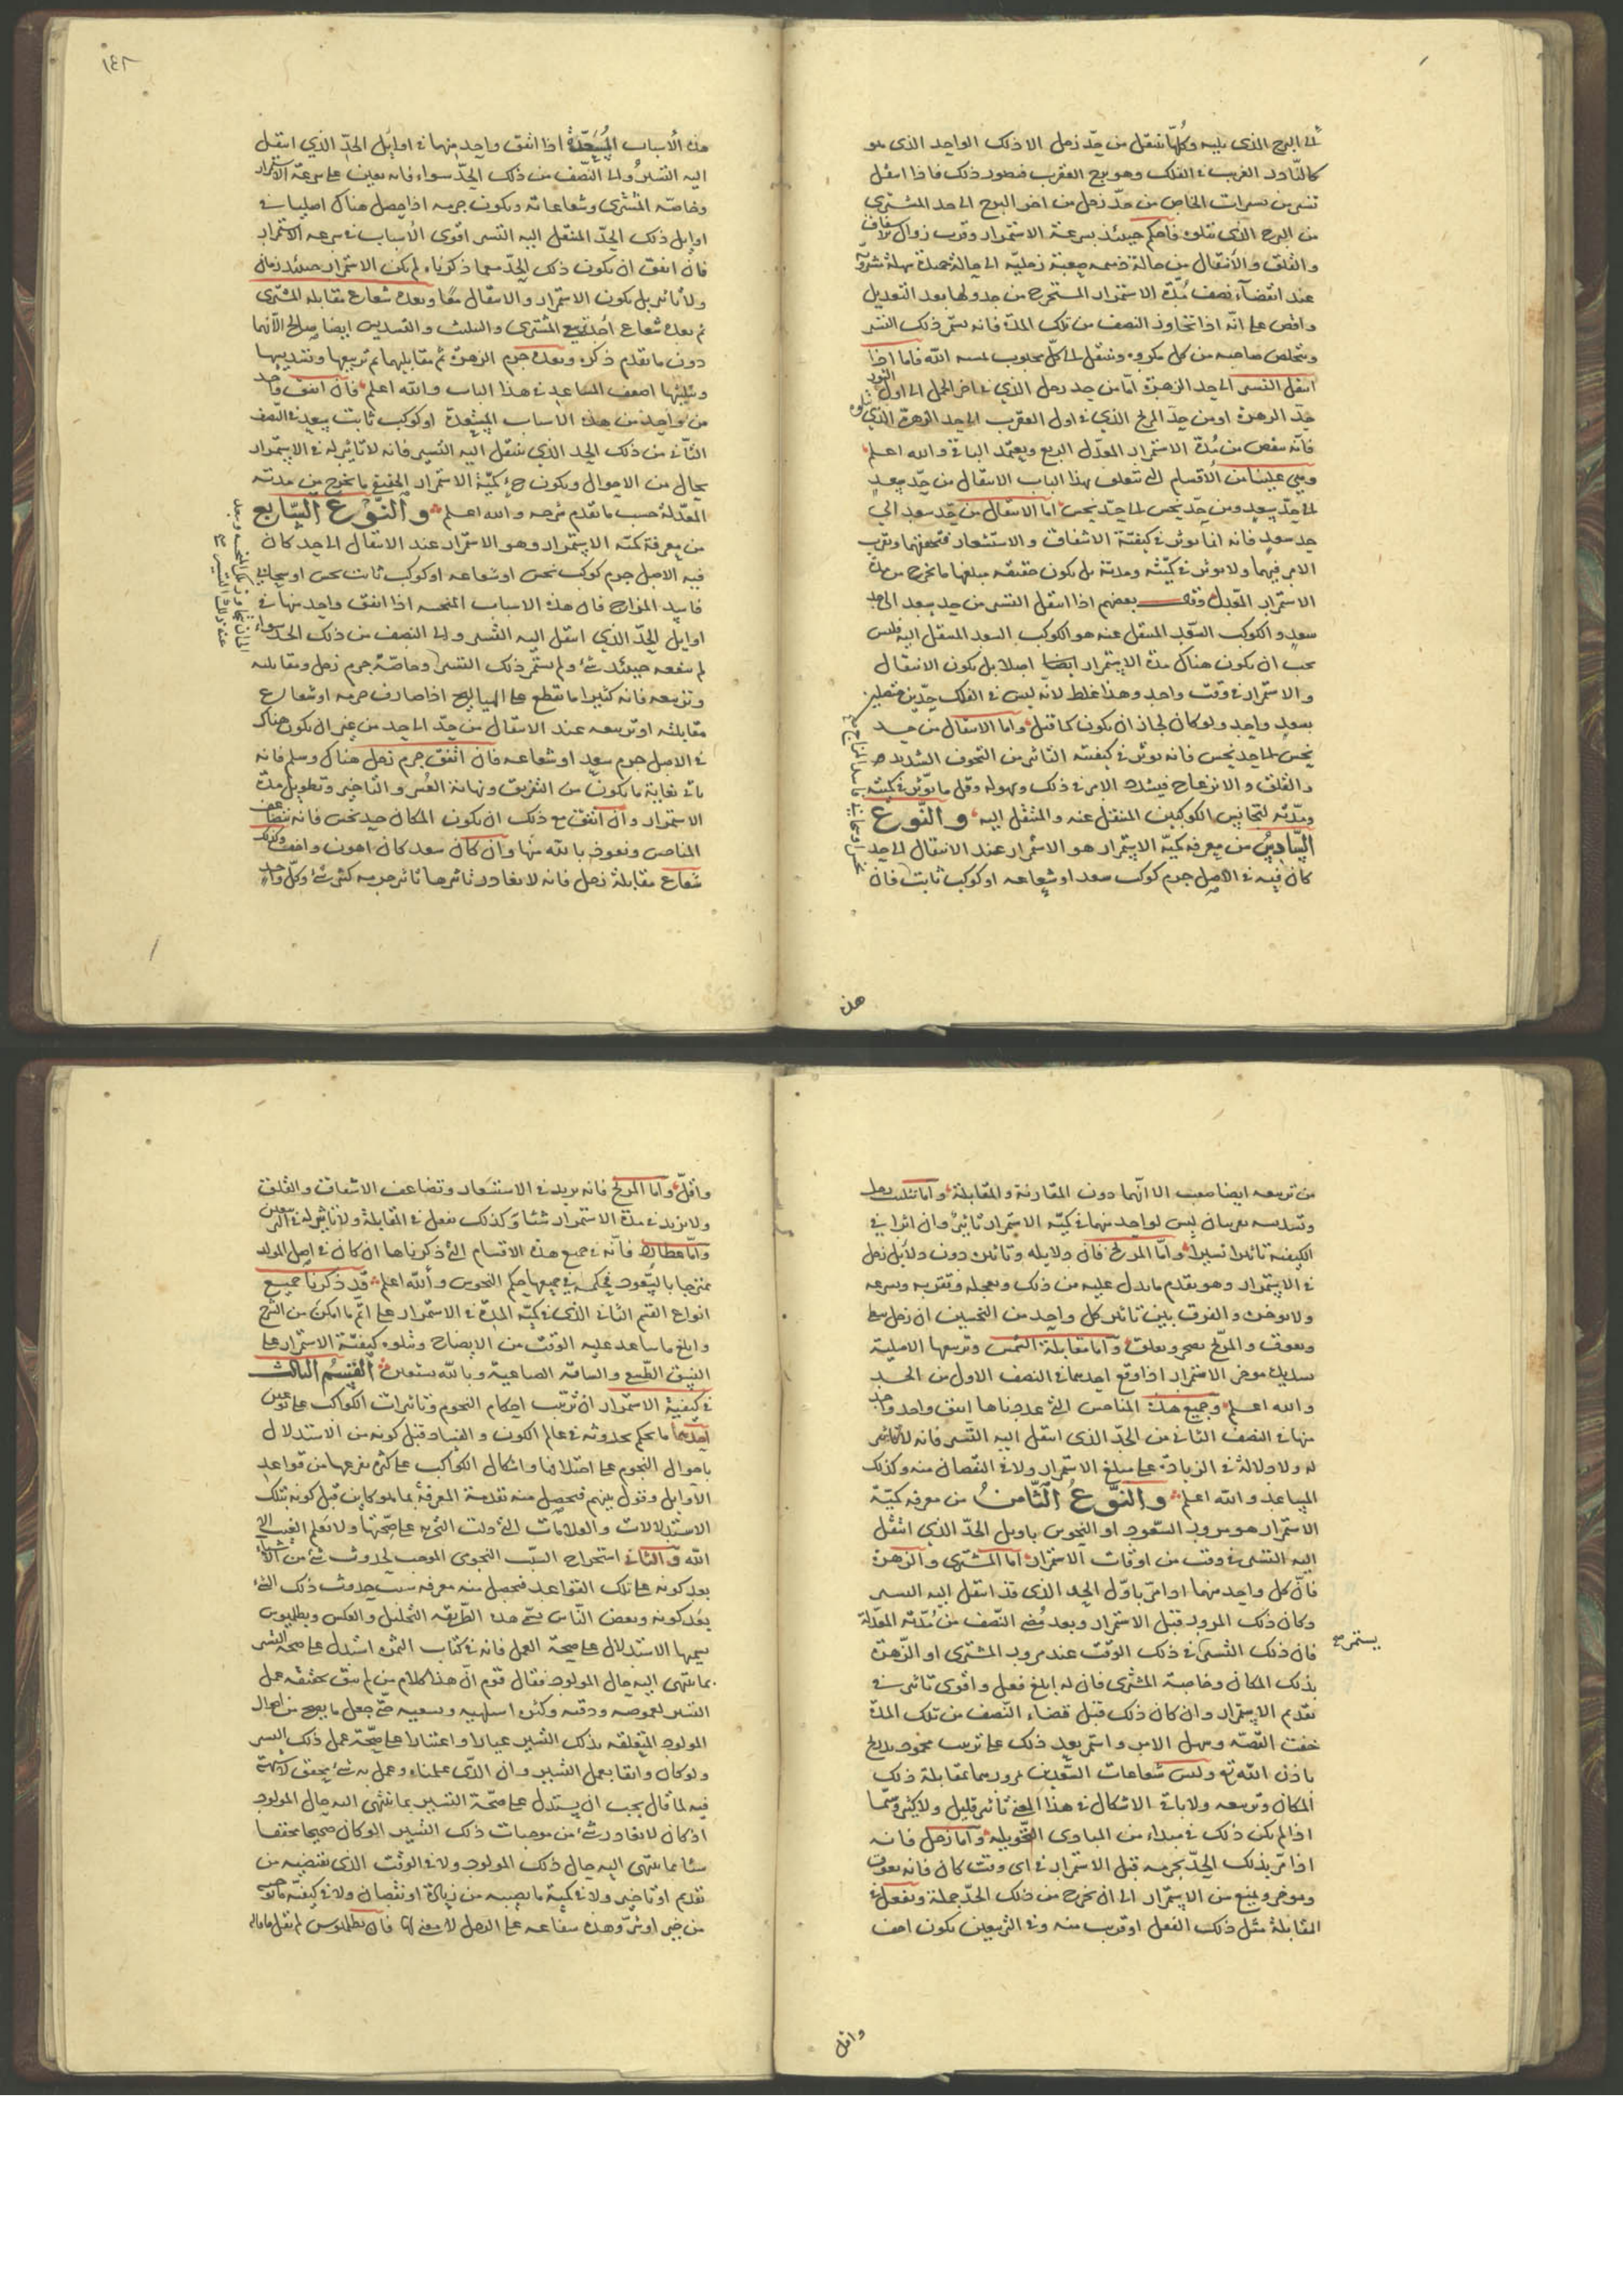 الى البرج الذي يليه وكلها تنتقل من حد زحل الا ذلك الواحد الذي هو
كالنادر الغريب في الفلك وهو برج العقرب فتصور ذلك فاذا انتقل
من البرج الذي يتلوه فاحكم حينئذ بسرعة الاستمرار وقرب زوال
والقلق والانتقال من حالة
عند انقضاء نصف مدة الاستمرار المستخرج من جدولها بعد التعديل
واقض على انه اذا تجاوز النصف من تلك المدة فانه يتم ذلك التسير
ويتخلص صاحبه من كل مكروه وينتقل الى كل محبوب بمشيه الله فاما اذا
انتقل التسير الى حد الزهرة اما من حد زحل الذي في اخر الحمل الى اول الثور
حد الزهرة او من حد المريخ الذي في اول العقرب الى حد الزهرة الذي يتلوه
فانه ينقص من مدة الاستمرار المعدل الربع ويعتمد الباقي والله اعلم
وبقي علينا من الاقسام التي تتعلق بهذا الباب الانتقال من حد سعد
الى حد سعد ومن حد نحس الى حد نحس اما الانتقال من حد سعد الى
حد سعد فانه انما يوثر في كيفية الاشفاق والاستشعار فيخففهما ويقرب
الامر فيهما ولا يوثر في كميته ومدته بل يكون حقيقه مبلغها ما يخرج من مدة
الاستمرار المعدل وقال بعضهم اذا انتقل التسير من حد سعد الى حد
سعد والكوكب السعد المنتقل عنه هو الكوكب السعد المنتقل اليه فليس
يجب ان يكون هناك مدة الاستمرار ايضا اصلا بل يكون الانتقال
والاستمرار في وقت واحد وهذا غلط لانه ليس في الفلك حدين متصلين
بسعد واحد ولو كان لجاز ان يكون كما قيل واما الانتقال من حد
نحس الى حد نحس فانه يوثر في كيفيته التاثير من التخوف الشديد
والقلق والانزعاج فيشتد الامر في ذلك ويهوله وقل ما يوثر في كميته
ومدته لتجانس الكوكبين المنتقل عنه والمنتقل اليه والنوع
السادس من معرفه كمية الاستمرار هو الاستمرار عند الانتقال الى حد
كان فيه في الاصل جرم كوكب سعد او شعاعه او كوكب ثابت فان
هذه
١٤٢
هذه الاسباب المسعدة اذا اتفق واحد منها في اوايل الحد الذي انتقل
اليه التسير والى النصف من ذلك الحد سواء فانه يعين على سرعة الاستمرار
وخاصه المشترى وشعاعاته ويكون جرمه اذا حصل هناك اصليا في
اوايل ذلك الحد المنتقل اليه التسير اقوى الاسباب في سرعه الاستمرار
فان اتفق ان يكون ذلك الحد سيما ذكرناه لم يكن الاستمرار حينئذ زمان
ولا تاثير بل يكون الاستمرار والانتقال معا وبعده شعاع مقابله المشترى
ثم بعده شعاع احد تربيع المشترى والتثليث والتسديس ايضا صالح الا انهما
دون ما تقدم ذكره وبعده جرم الزهرة ثم مقابليهما ثم تربيعها وتسديسها
وتثليثها اضعف المساعد في هذا الباب والله اعلم فان اتفق واحد
من واحد من هذه الاسباب المسعدة او كوكب ثابت سعد في النصف
الثاني من ذلك الحد الذي ينتقل اليه التسير فانه لا تاثير له في الاستمرار
بحال من الاحوال ويكون كمية الاستمرار الحقيق ما يخرج من مدته
المعدلة حسب ما تقدم شرحه والله اعلم والنوع السابع
من معرفة كميه الاستمرار وهو الاستمرار عند الانتقال الى حد كان
فيه الاصل جرم كوكب نحس او شعاعه او كوكب ثابت نحس او سحابي
فاسد المزاج فان هذه الاسباب المنحسه اذا اتفق واحد منها في
اوايل الحد الذي انتقل اليه التسير والى النصف من ذلك الحد سواء
لم ينفعه حينئذ شئ ولم يستمر ذلك التسير وخاصة جرم زحل ومقابلته
وتربيعه فانه كثيرا ما يقطع على الهيالج اذا صادف جرمه او شعاع
مقابلته او تربيعه عند الانتقال من حد الى حد من غير ان يكون هناك
في الاصل جرم سعد او شعاعه فان اتفق جرم زحل هناك وسلم فانه
ياتي بغاية ما يكون من التفريق ونهاية العسر والتاخير وتطويل مدة
الاستمرار وان اتفق مع ذلك ان يكون المكان حد نحس فانه تتضاعف
المناحس ونعوذ بالله منها وان كان سعد كان اهون واخف وكذلك
شعاع مقابلة زحل فانه لا يغادر تاثيرها تاثير جرمه كثير شئ وكل واحد
من تربيعه ايضا صعب الا انهما دون المقارنة والمقابلة واما تثليث زحل
وتسديسه ليس لواحد منهما في كمية الاستمرار تاثير وان اثرا في
الكيفية تاثيرا يسيرا واما المريخ فان دلايله وتاثيره دون دلايل زحل
في الاستمرار وهو يقدم ما يدل عليه من ذلك ويعجله ويقربه ويسرعه
ولا يوخره والفرق بين تاثير كل واحد من النحسين ان زحل يبطئ
ويعوق والمريخ واما مقابلة الشمس وتربيعها الاصلية
موخر الاستمرار اذا وقع احدهما في النصف الاول من الحد
والله اعلم وجميع هذه المناحس التي عددناها اتفق واحد واحد
منها في النصف الثاني من الحد الذي انتقل اليه التسير فانه لا تاثير
له ولا دلالة في الزيادة على مبلغ الاستمرار ولا في النقصان منه وكذلك
المساعد والله اعلم والنوع الثامن من معرفه كمية
الاستمرار هو مرور السعود او النحوس باويل الحد الذي انتقل
اليه التسير في وقت من اوقات الاستمرار اما المشترى والزهرة
فان كل واحد منهما اذا مر باول الحد الذي قد انتقل اليه التسير
وكان ذلك المرور قبل الاستمرار وبعد مضي النصف من مدته المعدلة
فان ذلك التسير في ذلك الوقت عند مرور المشترى او الزهرة
يستمر صح
بذلك المكان وخاصية المشترى فان له ابلغ فعل واقوى تاثير في
تقديم الاستمرار وان كان ذلك قبل قضاء النصف من تلك المدة
خفت القصة وسهل الامر واستمر بعد ذلك على ترتيب محمود بتدريج
باذن الله تع وليس شعاعات السعدين ومرورهما بمقابلة ذلك
المكان وتربيعه ولا باقي الاشكال في هذا المعنى تاثير قليل ولا كثير وسيما
اذا لم يكن ذلك في مبداء من المبادى التحويليه واما زحل فانه
اذا مر بذلك الحد بجرمه قبل الاستمرار في اي وقت كان فانه يعوق
ويوخر ويمنع من الاستمرار الى ان يخرج من ذلك الحد جملة ويفعل في
المقابلة مثل ذلك الفعل او قريب منه وفي التربيعين يكون اخف
واقل
واقل واما المريخ فانه يزيد في الاستشعار وتضاعف الاشفاق والقلق
ولا يزيد في مدة الاستمرار شئا وكذلك يفعل في المقابلة ولا تاثير له في التربيعين
واما عطارد فانه في جميع هذه الاقسام التي ذكرناها ان كان في اصل المولد
ممتزجا بالسعود فحكمه في جميعها حكم النحوس والله اعلم قد ذكرنا جميع
انواع القسم الثاني الذي في كمية المدة في الاستمرار على اتم ما امكن من الشرح
وابلغ ما ساعد عليه الوقت من الايضاح ونتلوه كيفية الاستمرار على
النسق الطبيع والسافه الصناعية وبالله نستعين القسم الثالث
في كيفية الاستمرار ان ترتيب احكام النجوم وتاثيرات الكواكب على نوعين
احدهما ما يحكم بحدوثه في عالم الكون والفساد قبل كونه من الاستدلال
باحوال النجوم على اختلافها واشكال الكواكب على كثرة تفرعها من قواعد
الاوايل وقول بينهم فيحصل منه تقدمة المعرفة بما هو كاين قبل كونه بتلك
الاستدلالات والعلامات التي دلت التجربه على صحتها ولا يعلم الغيب الا
الله والثاني استخراج السبب النجومي الموجب لحدوث شئ من الاشياء
بعد كونه على تلك القواعد فيحصل منه معرفه سبب حدوث ذلك الشئ
بعد كونه وبعض الناس يسمي هذه الطريقه التحليل والعكس وبطلميوس
يسميها الاستدلال على صحة العمل فانه في كتاب الثمرة استدل على صحة التسير
بما ينتهى اليه حال المولود فقال قوم ان هذا كلام من لم يثق بحقيقه عمل
التسير لغموضه ودقته وكثرة حتى جعل ما يصح من احوال
المولود المتعلقه بذلك التسير عيارا واعتبارا على صحة عمل ذلك التسير
ولو كان واثقا بعمل التسير وان الذي عملناه وعمل به شئ يحقق لا شبهة
فيه لما قال يجب ان يستدل على صحة التسير بما ينتهى اليه حال المولود
اذ كان لا يغادر شئ من موجبات ذلك التسير لو كان صحيحا محققا
شئا مما ينتهى اليه حال ذلك المولود ولا في الوقت الذي يقتضيه من
تقديم او تاخير ولا في كمية ما يصيبه من زيادة او نقصان ولا في كيفية ما
من خير او شر وهذه شفاعه على الرجل لا معنى لها فان بطلميوس لم يقل ما قاله